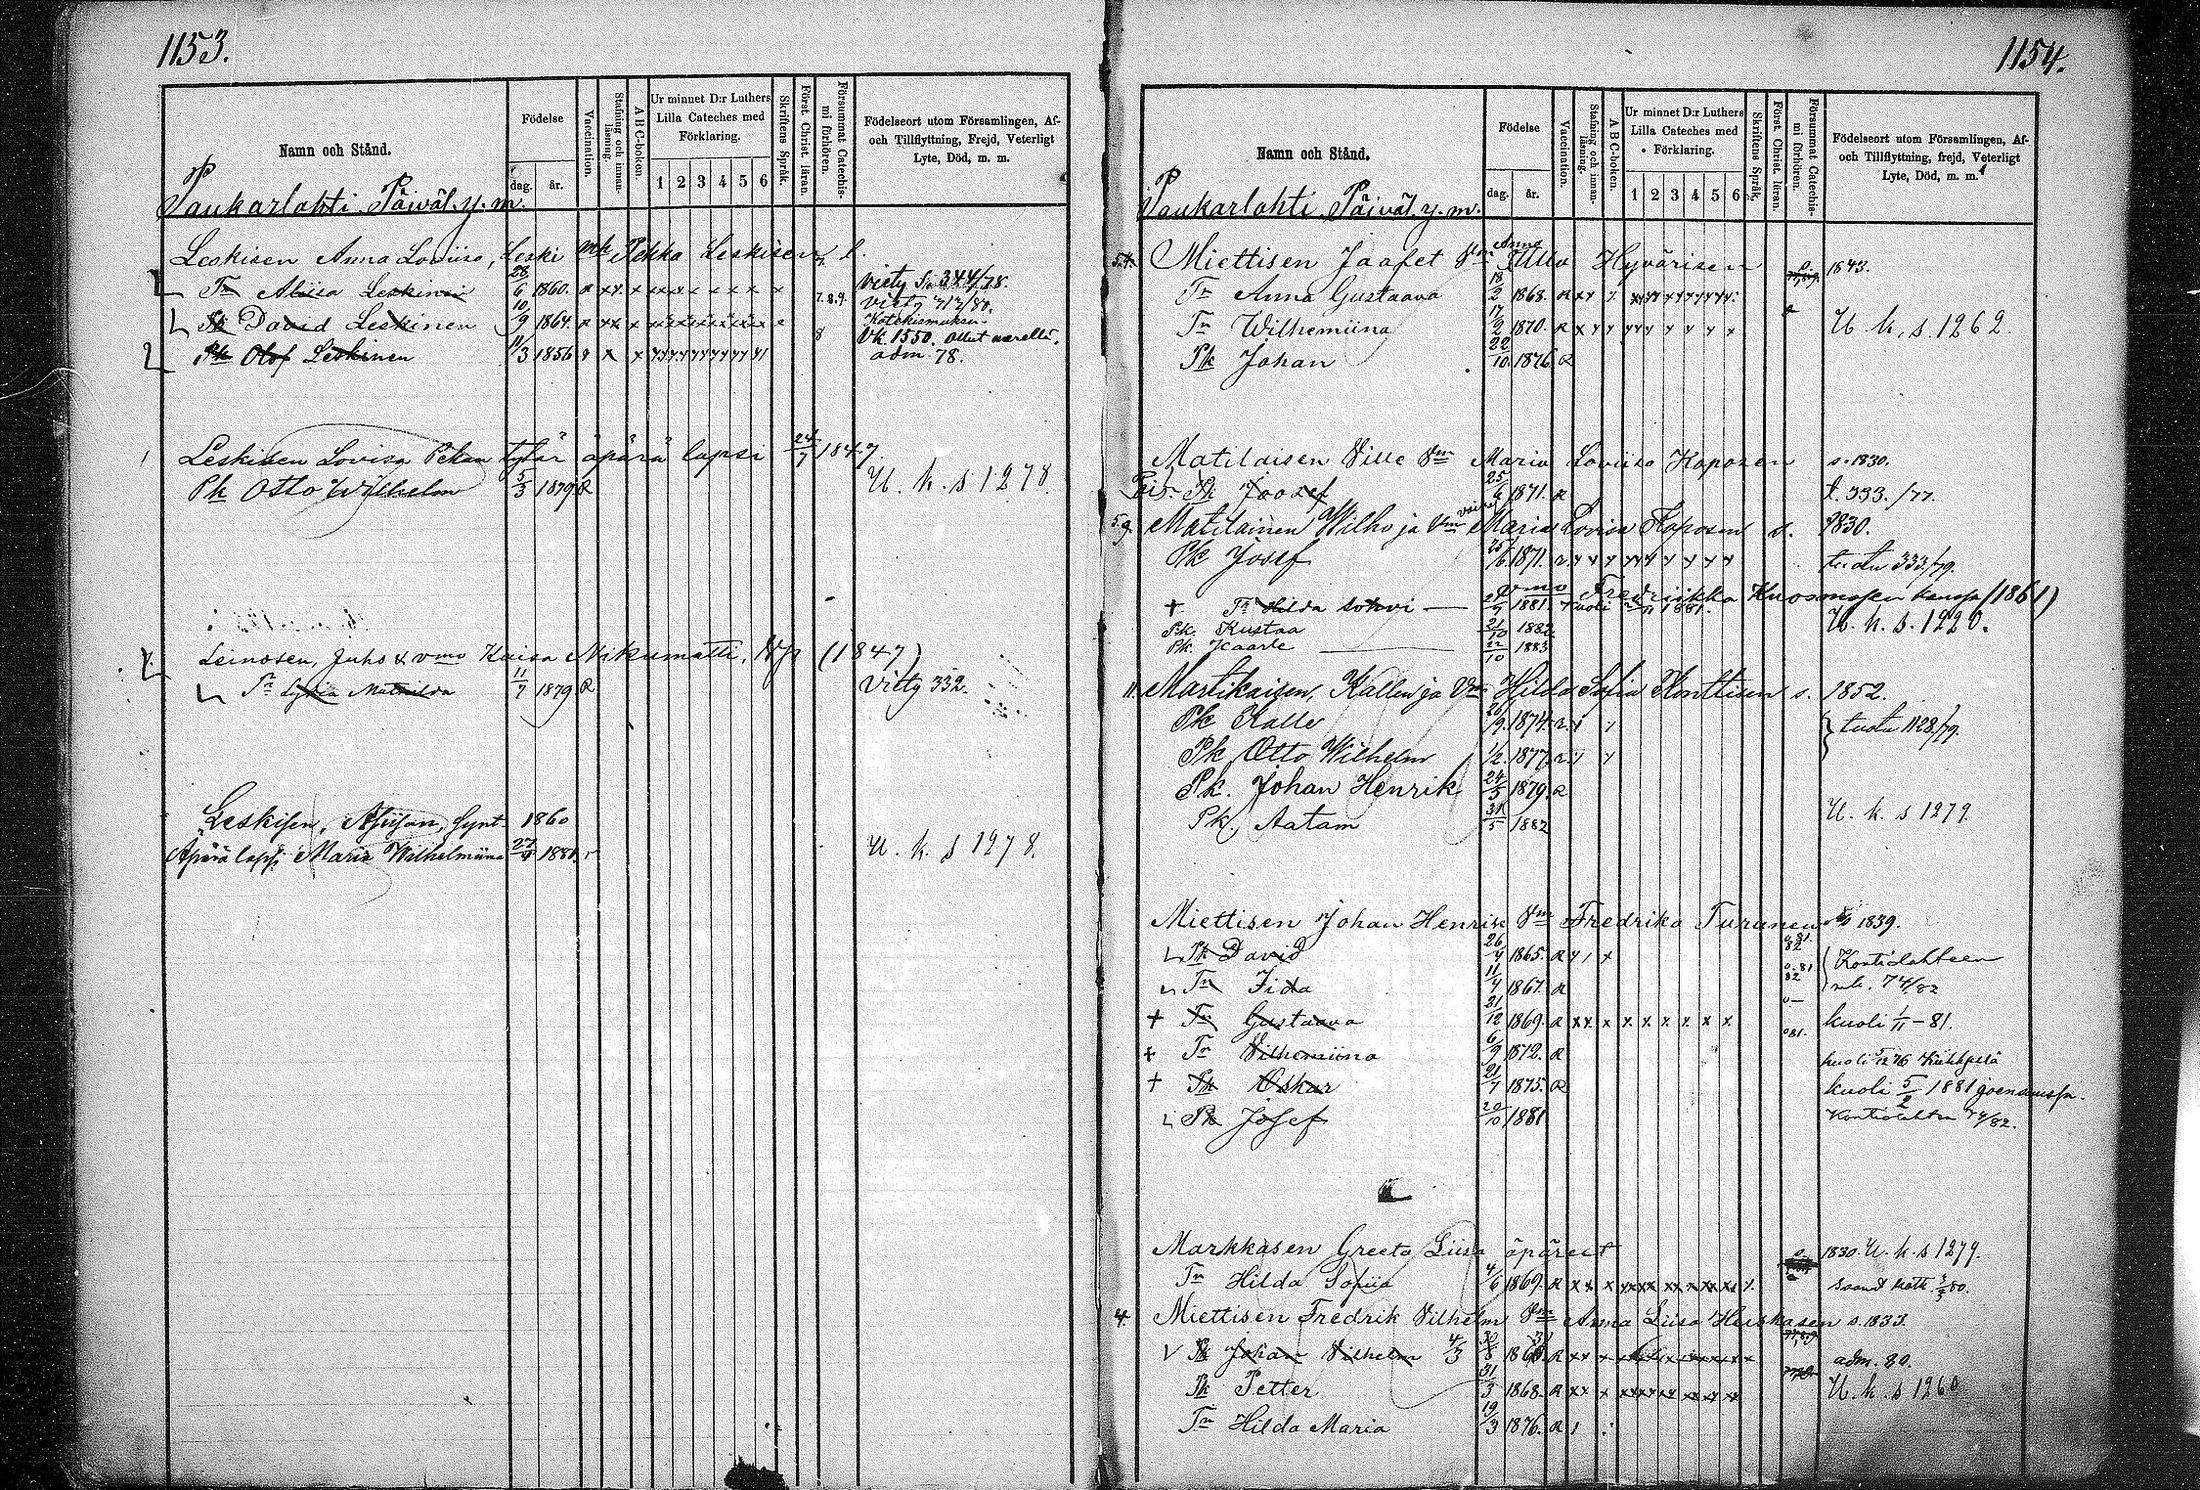 1153.
Namn och Stånd.
Födelse
dag. år.
Vaccination.
Stafning och innanläsning.
A B C-boken.
Ur minnet D:r Luthers Lilla Cateches med Förklaring.
1 2 3 4 5 6
Skriftens Språk.
Först. Christ. läran.
Försummat Catechismi förhören.
Födelseort utom Församlingen, Af- och Tillflyttning, Frejd, Veterligt Lyte, Död, m. m.
Paukarlahti Päiväl. y. m.
Leskisen Anna Loviisa, Leski mk Pekka Leskisen l.
Tr Aliisa Leskinen 28/6 1860. visty S. 344/78.
Pk David Leskinen 10/9 1864. 7.8.9. visty 712/80.
Katekismuksen
Pk Olof Leskinen 11/3 1856 8 Vk. 1550. ollut merellä.
adm. 78.
Leskisen Lovisa Pekan tytär äpärä lapsi 24/7 1847.
Pk Otto Wilhelm 5/3 1879 R U. k. s 1278.
Leinosen, Juho & vmo Kaisa Nikumatti, (1847)
Tr Mathilda 11/7 1879 R Vitty 332.
Leskisen, synt. 1860
Äpärä lapsi Maria Wilhelmiina 27/4 1881. U. k. s 1278.
1154.
Namn och Stånd.
Födelse
dag. år.
Vaccination.
Stafning och innanläsning.
A B C-boken.
Ur minnet D:r Luthers Lilla Cateches med Förklaring.
1 2 3 4 5 6
Skriftens Språk.
Först. Christ. läran.
Försummat Catechismi förhören.
Födelseort utom Församlingen, Af- och Tillflyttning, frejd, Veterligt Lyte, Död, m. m.
Paukarlahti Päiväl. y. m.
54. Miettisen Jaafet Vm Anna Ulla Hyvärisen 1843.
Tr Anna Gustaava 18/2 1868. R
Tr Wilhemiina 17/2 1870. R U. k. s. 1262.
Pk Johan 22/10 1876. R
Matilaisen Ville Vm Maria Loviisa Kaposen s. 1830.
Pk Joosef 25/6 1871. R t. 333./77.
59. Matilainen Wilho ja Vm vaimo Maria Lovisa Kaposen s. 1830.
Pk Josef 25/6 1871. tuotu 333/79.
vmo Fredriikka Kuosmasen (1861)
+ Tr Hilda 1881. kuoli 1881.
Pk. Kustaa 21/10 1882. U. k. s. 1220.
Pk. Kaarle 22/10 1883
11. Martikaisen, Kallen ja Vm Hilda Sofia Konttisen s. 1852.
Pk Kalle 26/9 1874. tuotu 1128/79.
Pk Otto Wilhelm 1/2 1877.
Pk. Johan Henrik 24/3 1879. R
Pk. Aatam 31/5 1882 U. k. s 1279.
Miettisen Johan Henrik Vm Fredrika Turunen 1839.
Pk David 26/4 1865. R Kontiolahteen
Tr Fida 11/4 1867. R mk. 74/82
+ Tr Gustaava 21/12 1869. R kuoli 1/11-81.
+ Tr Vilhemiina 6/9 1872. R kuoli
+ Pk Oskar 21/7 1875. R kuoli 5/2 1881 Joensuussa.
Pk Josef 20/10 1881 Kontiolahten 74/82.
Markkasen Greeta Liisa äpäreet 1830. U. k. s 1279.
Tr Hilda Sofiia 4/6 1869. R
4. Miettisen Fredrik Vilhelm Vm Anna Liisa Heiskasen s. 1833.
V Pk Johan Vilhelm adm. 80.
Pk Petter 31/3 1868. R U. k. s 1260
Tr Hilda Maria 19/3 1876. R